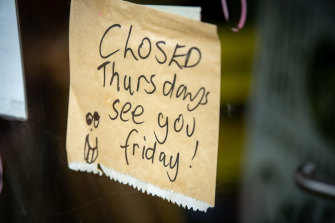 CLOSED
Thursdays
see you
friday!